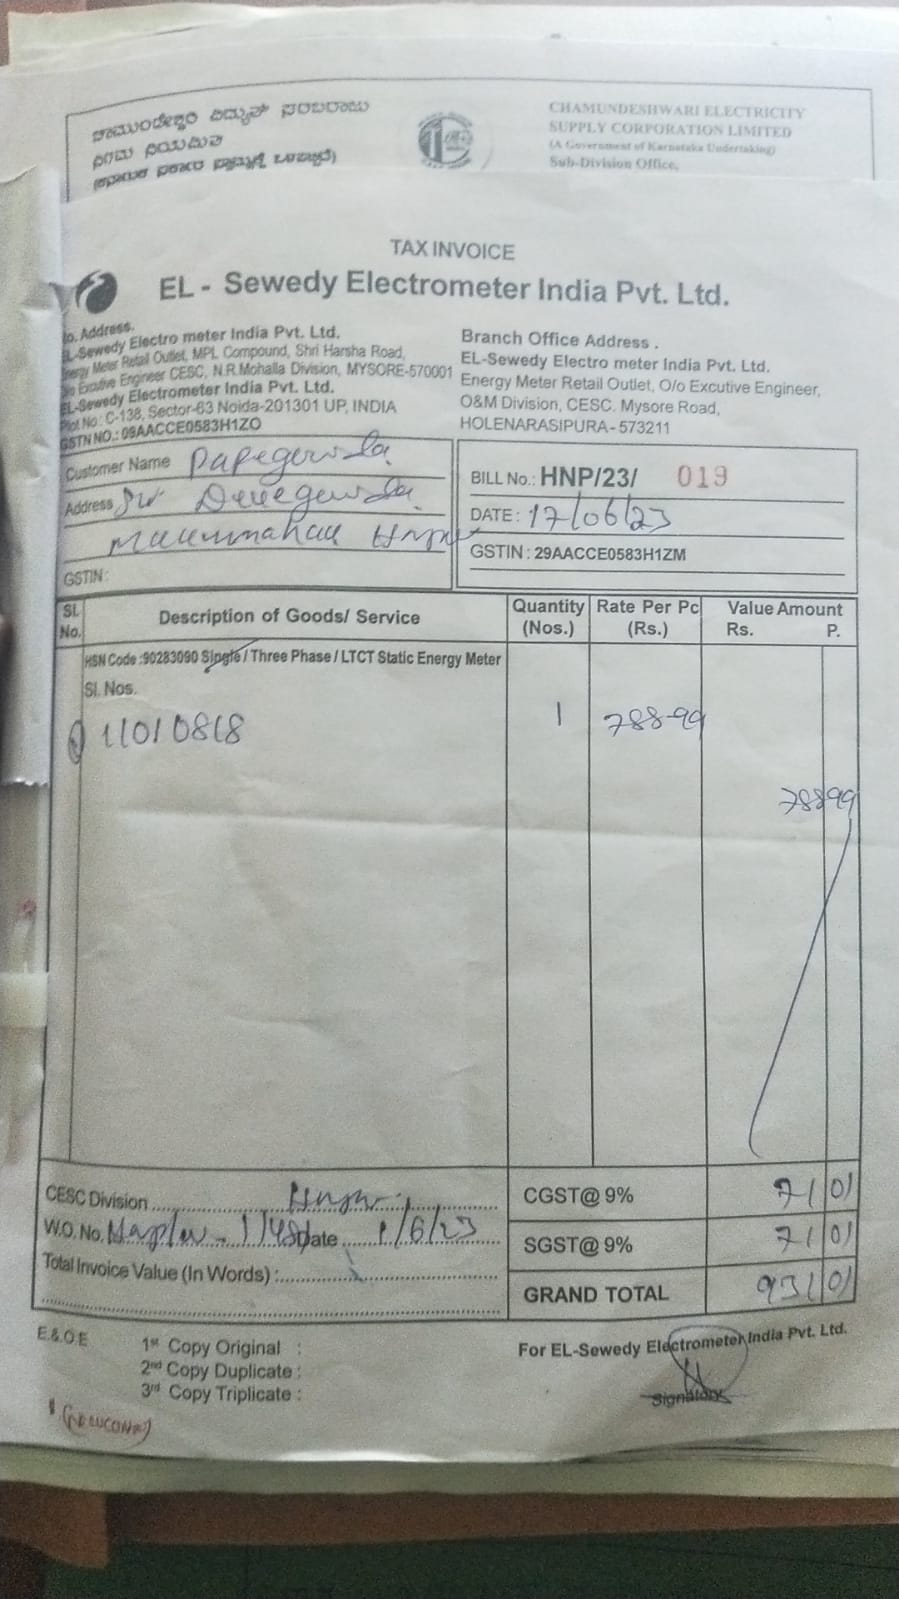 ಚಾಮುಂಡೇಶ್ವರಿ ವಿದ್ಯುತ್ ಸರಬರಾಜು
ನಿಗಮ ನಿಯಮಿತ
CHAMUNDESHWARI ELECTRICITY
SUPPLY CORPORATION LIMITED
(A Government of Karnataka Undertaking)
Sub-Division Office,
TAX INVOICE
EL - Sewedy Electrometer India Pvt. Ltd.
Address.
EL-Sewedy Electro meter India Pvt. Ltd.
Energy Meter Retail Outlet, MPL Compound, Shri Harsha Road,
Excutive Engineer CESC, N.R.Mohalla Division, MYSORE-570001
EL-Sewedy Electrometer India Pvt. Ltd.
Plot No : C-138, Sector-63 Noida-201301 UP, INDIA
GSTN NO.: 09AACCE0583H1ZO
Branch Office Address .
EL-Sewedy Electro meter India Pvt. Ltd.
Energy Meter Retail Outlet, O/o Excutive Engineer,
O&M Division, CESC. Mysore Road,
HOLENARASIPURA - 573211
Customer Name Papegowda
Address S/o Devegowda
GSTIN :
BILL No.: HNP/23/ 019
DATE : 17/06/23
GSTIN : 29AACCE0583H1ZM
Sl. No. Description of Goods/ Service Quantity (Nos.) Rate Per Pc (Rs.) Value Amount Rs. P.
HSN Code :90283090 Single / Three Phase / LTCT Static Energy Meter
Sl. Nos.
11010818 1 788-99
788 99
CESC Division
CGST@ 9% 71 01
W.O. No. Date 1/6/23
SGST@ 9% 71 01
Total Invoice Value (In Words) :
GRAND TOTAL 931 01
E.& O.E
1st Copy Original :
2nd Copy Duplicate :
3rd Copy Triplicate :
For EL-Sewedy Electrometer India Pvt. Ltd.
Signatory